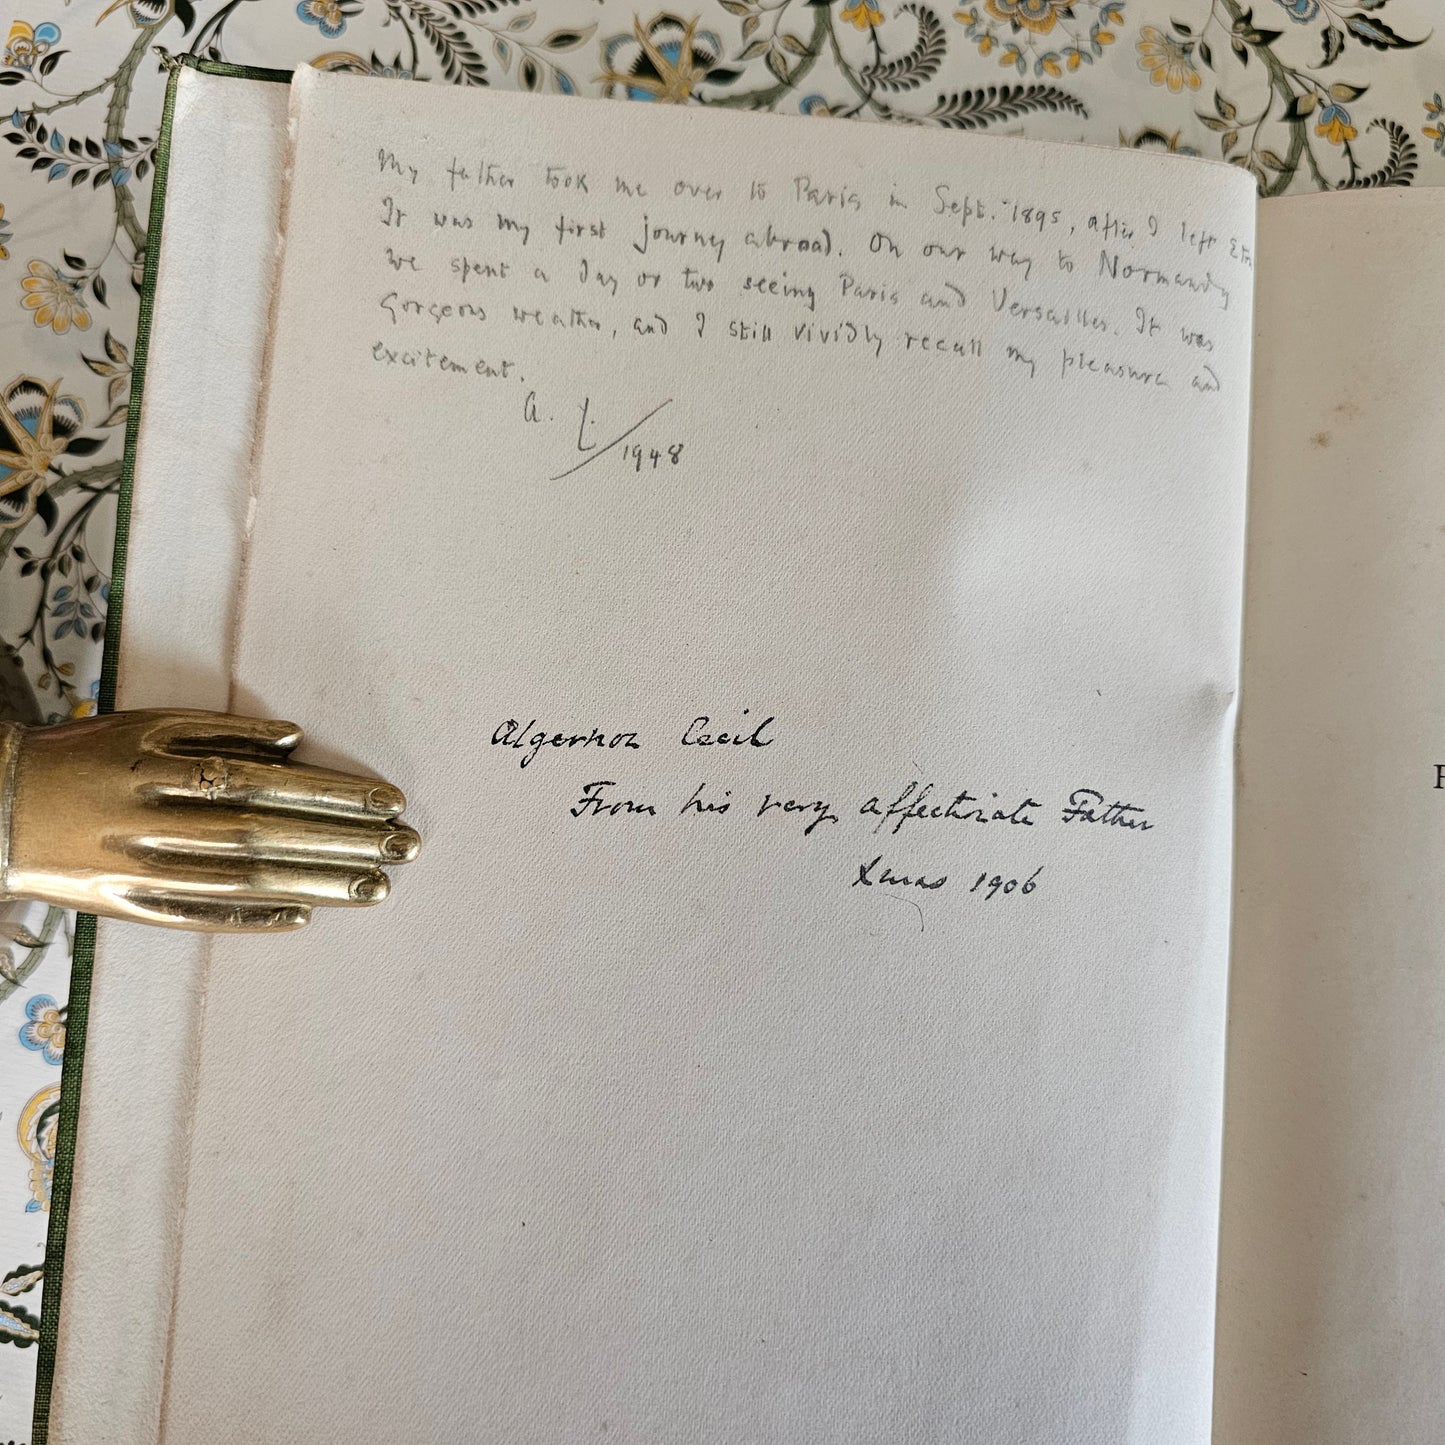 My father took me over to Paris in Sept. 1895, after I left Eton
It was my first journey abroad. On our way to Normandy
we spent a day or two seeing Paris and Versailles. It was
gorgeous weather, and I still vividly recall my pleasure and
excitement.
A.
1948
Algernon Cecil
From his very affectionate Father
Xmas 1906